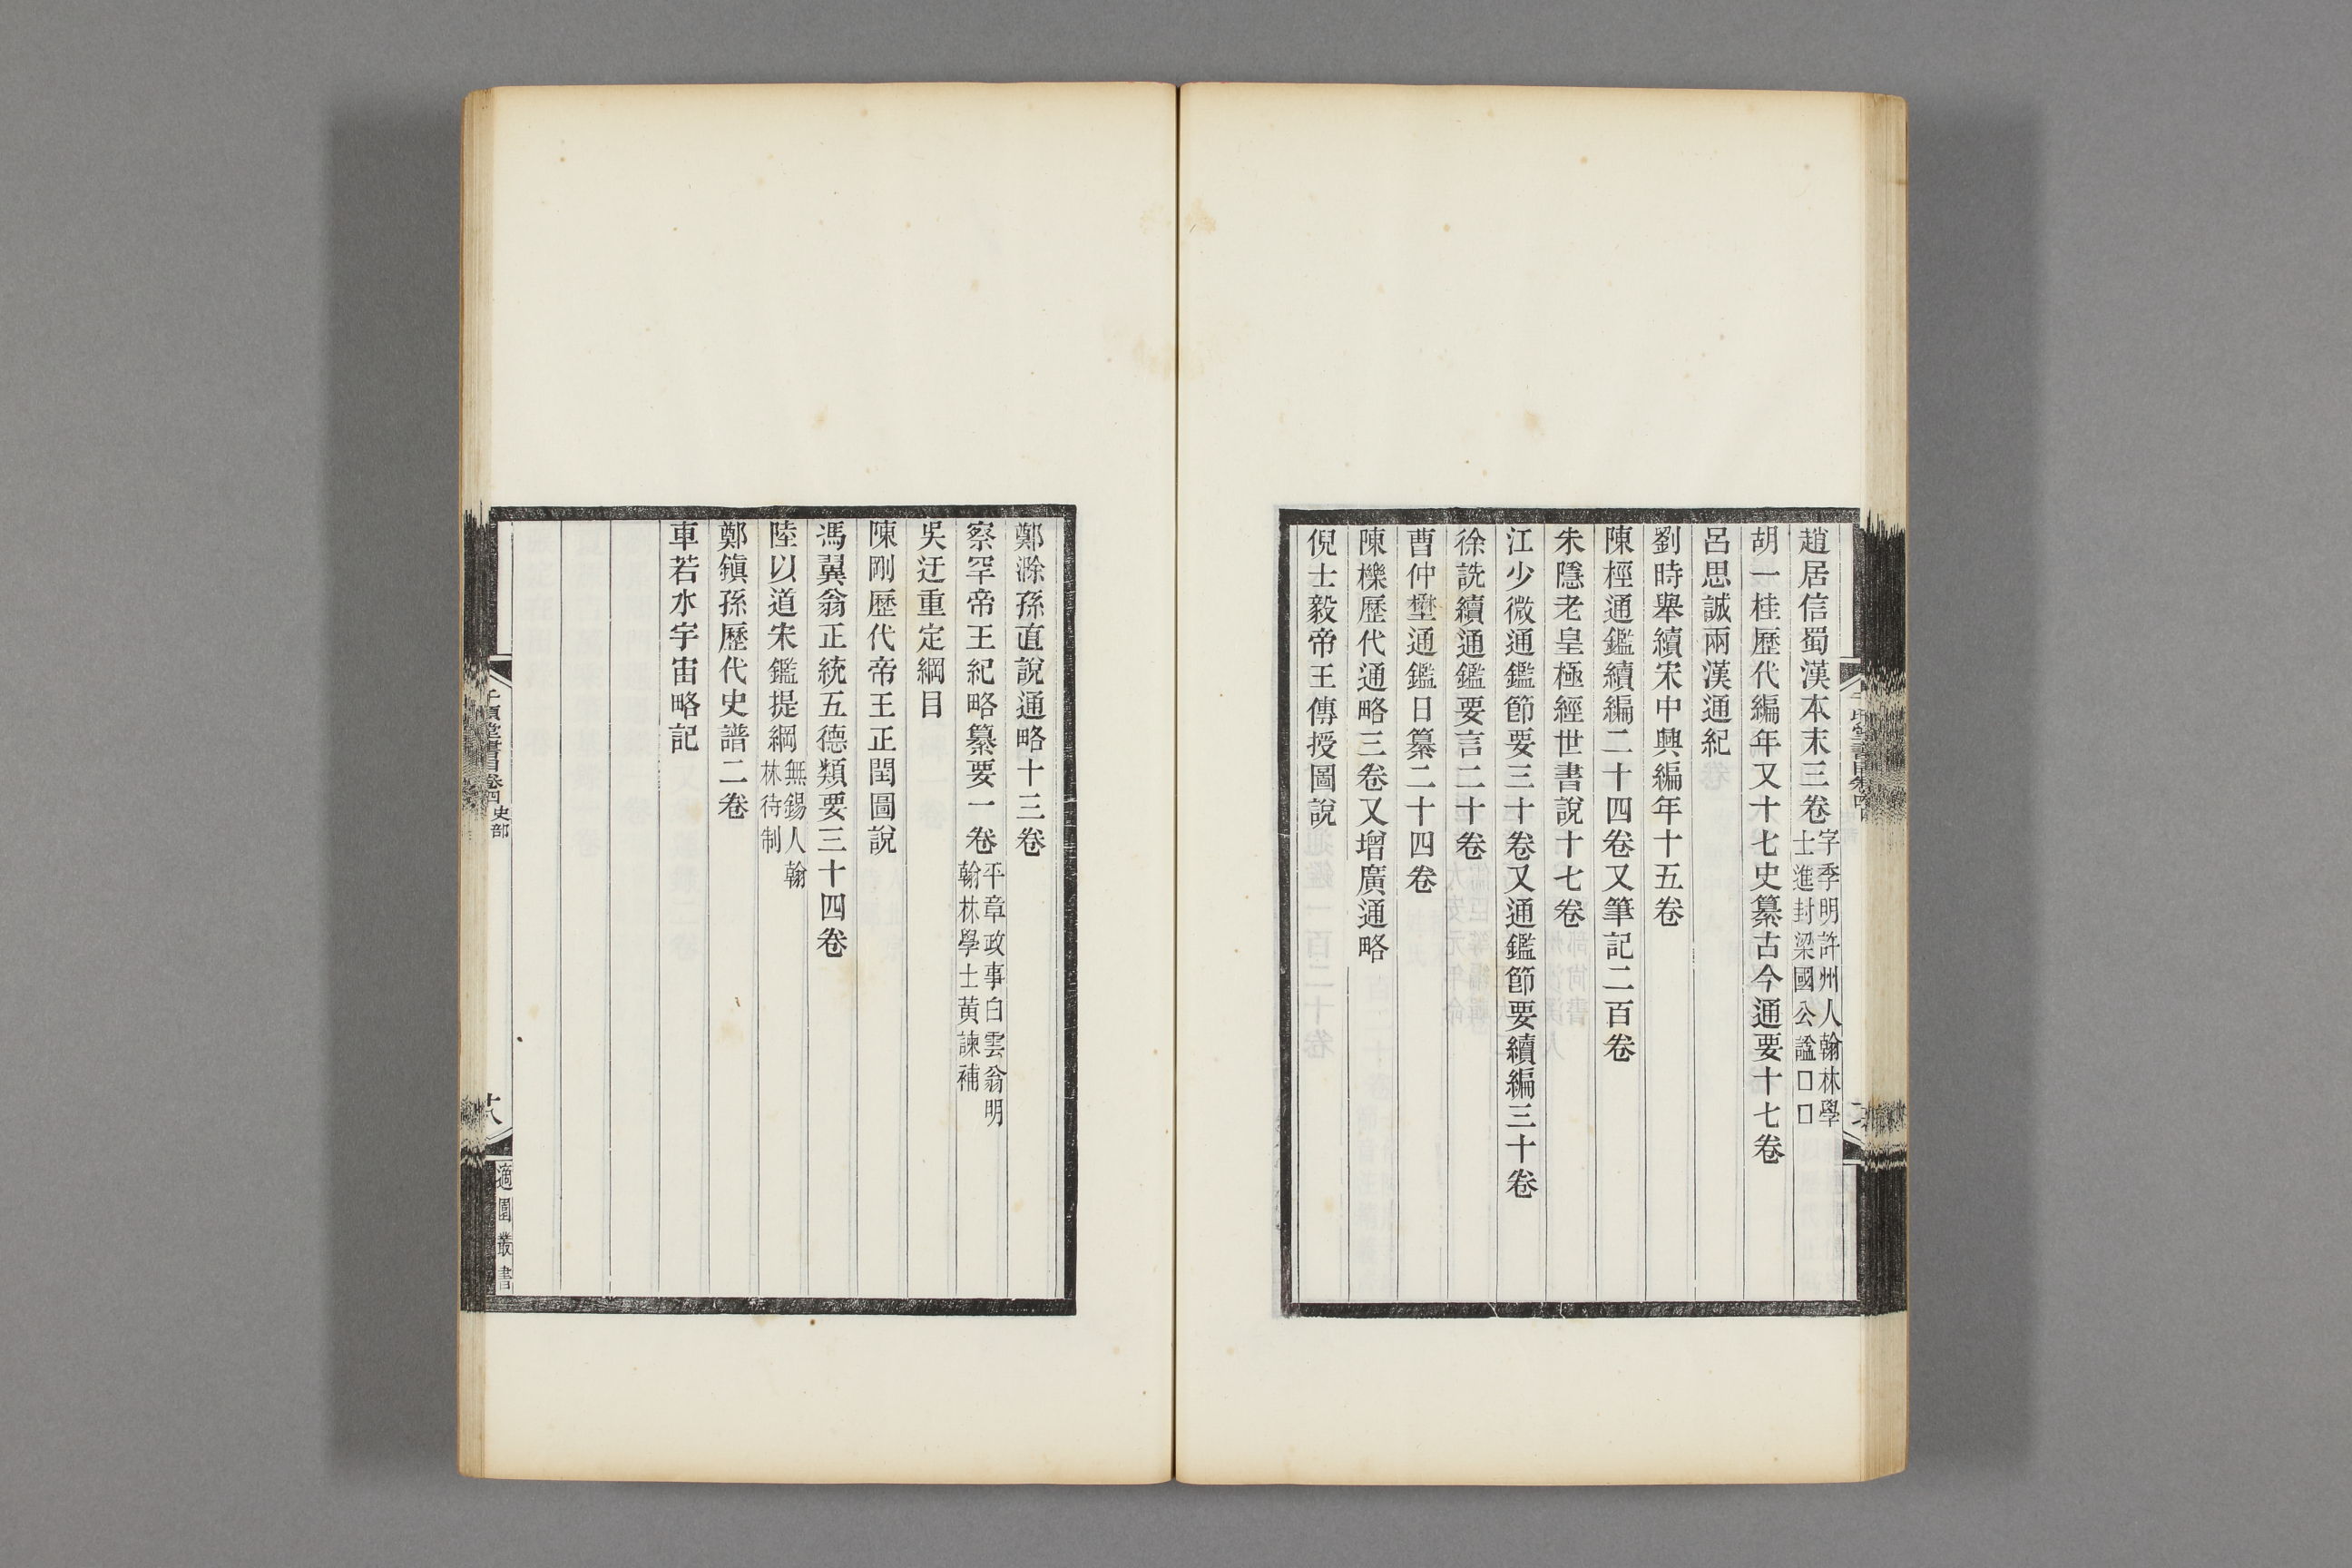 趙居信蜀漢本末三卷字季明許州人翰林學
士進封梁國公諡□□
胡一桂歷代編年又十七史纂古今通要十七卷
呂思誠兩漢通紀
劉時舉續宋中興編年十五卷
陳桱通鑑續編二十四卷又筆記二百卷
朱隱老皇極經世書說十七卷
江少微通鑑節要三十卷又通鑑節要續編三十卷
徐詵續通鑑要言二十卷
曹仲壄通鑑日纂二十四卷
陳櫟歷代通略三卷又增廣通略
倪士毅帝王傳授圖說
鄭滁孫直說通略十三卷
察罕帝王紀略纂要一卷平章政事白雲翁明
翰林學士黃諫補
吳迂重定綱目
陳剛歷代帝王正閏圖說
馮翼翁正統五德類要三十四卷
陸以道宋鑑提綱無錫人翰
林待制
鄭鎮孫歷代史譜二卷
車若水宇宙略記
千頃堂書目卷四 史部
適園叢書